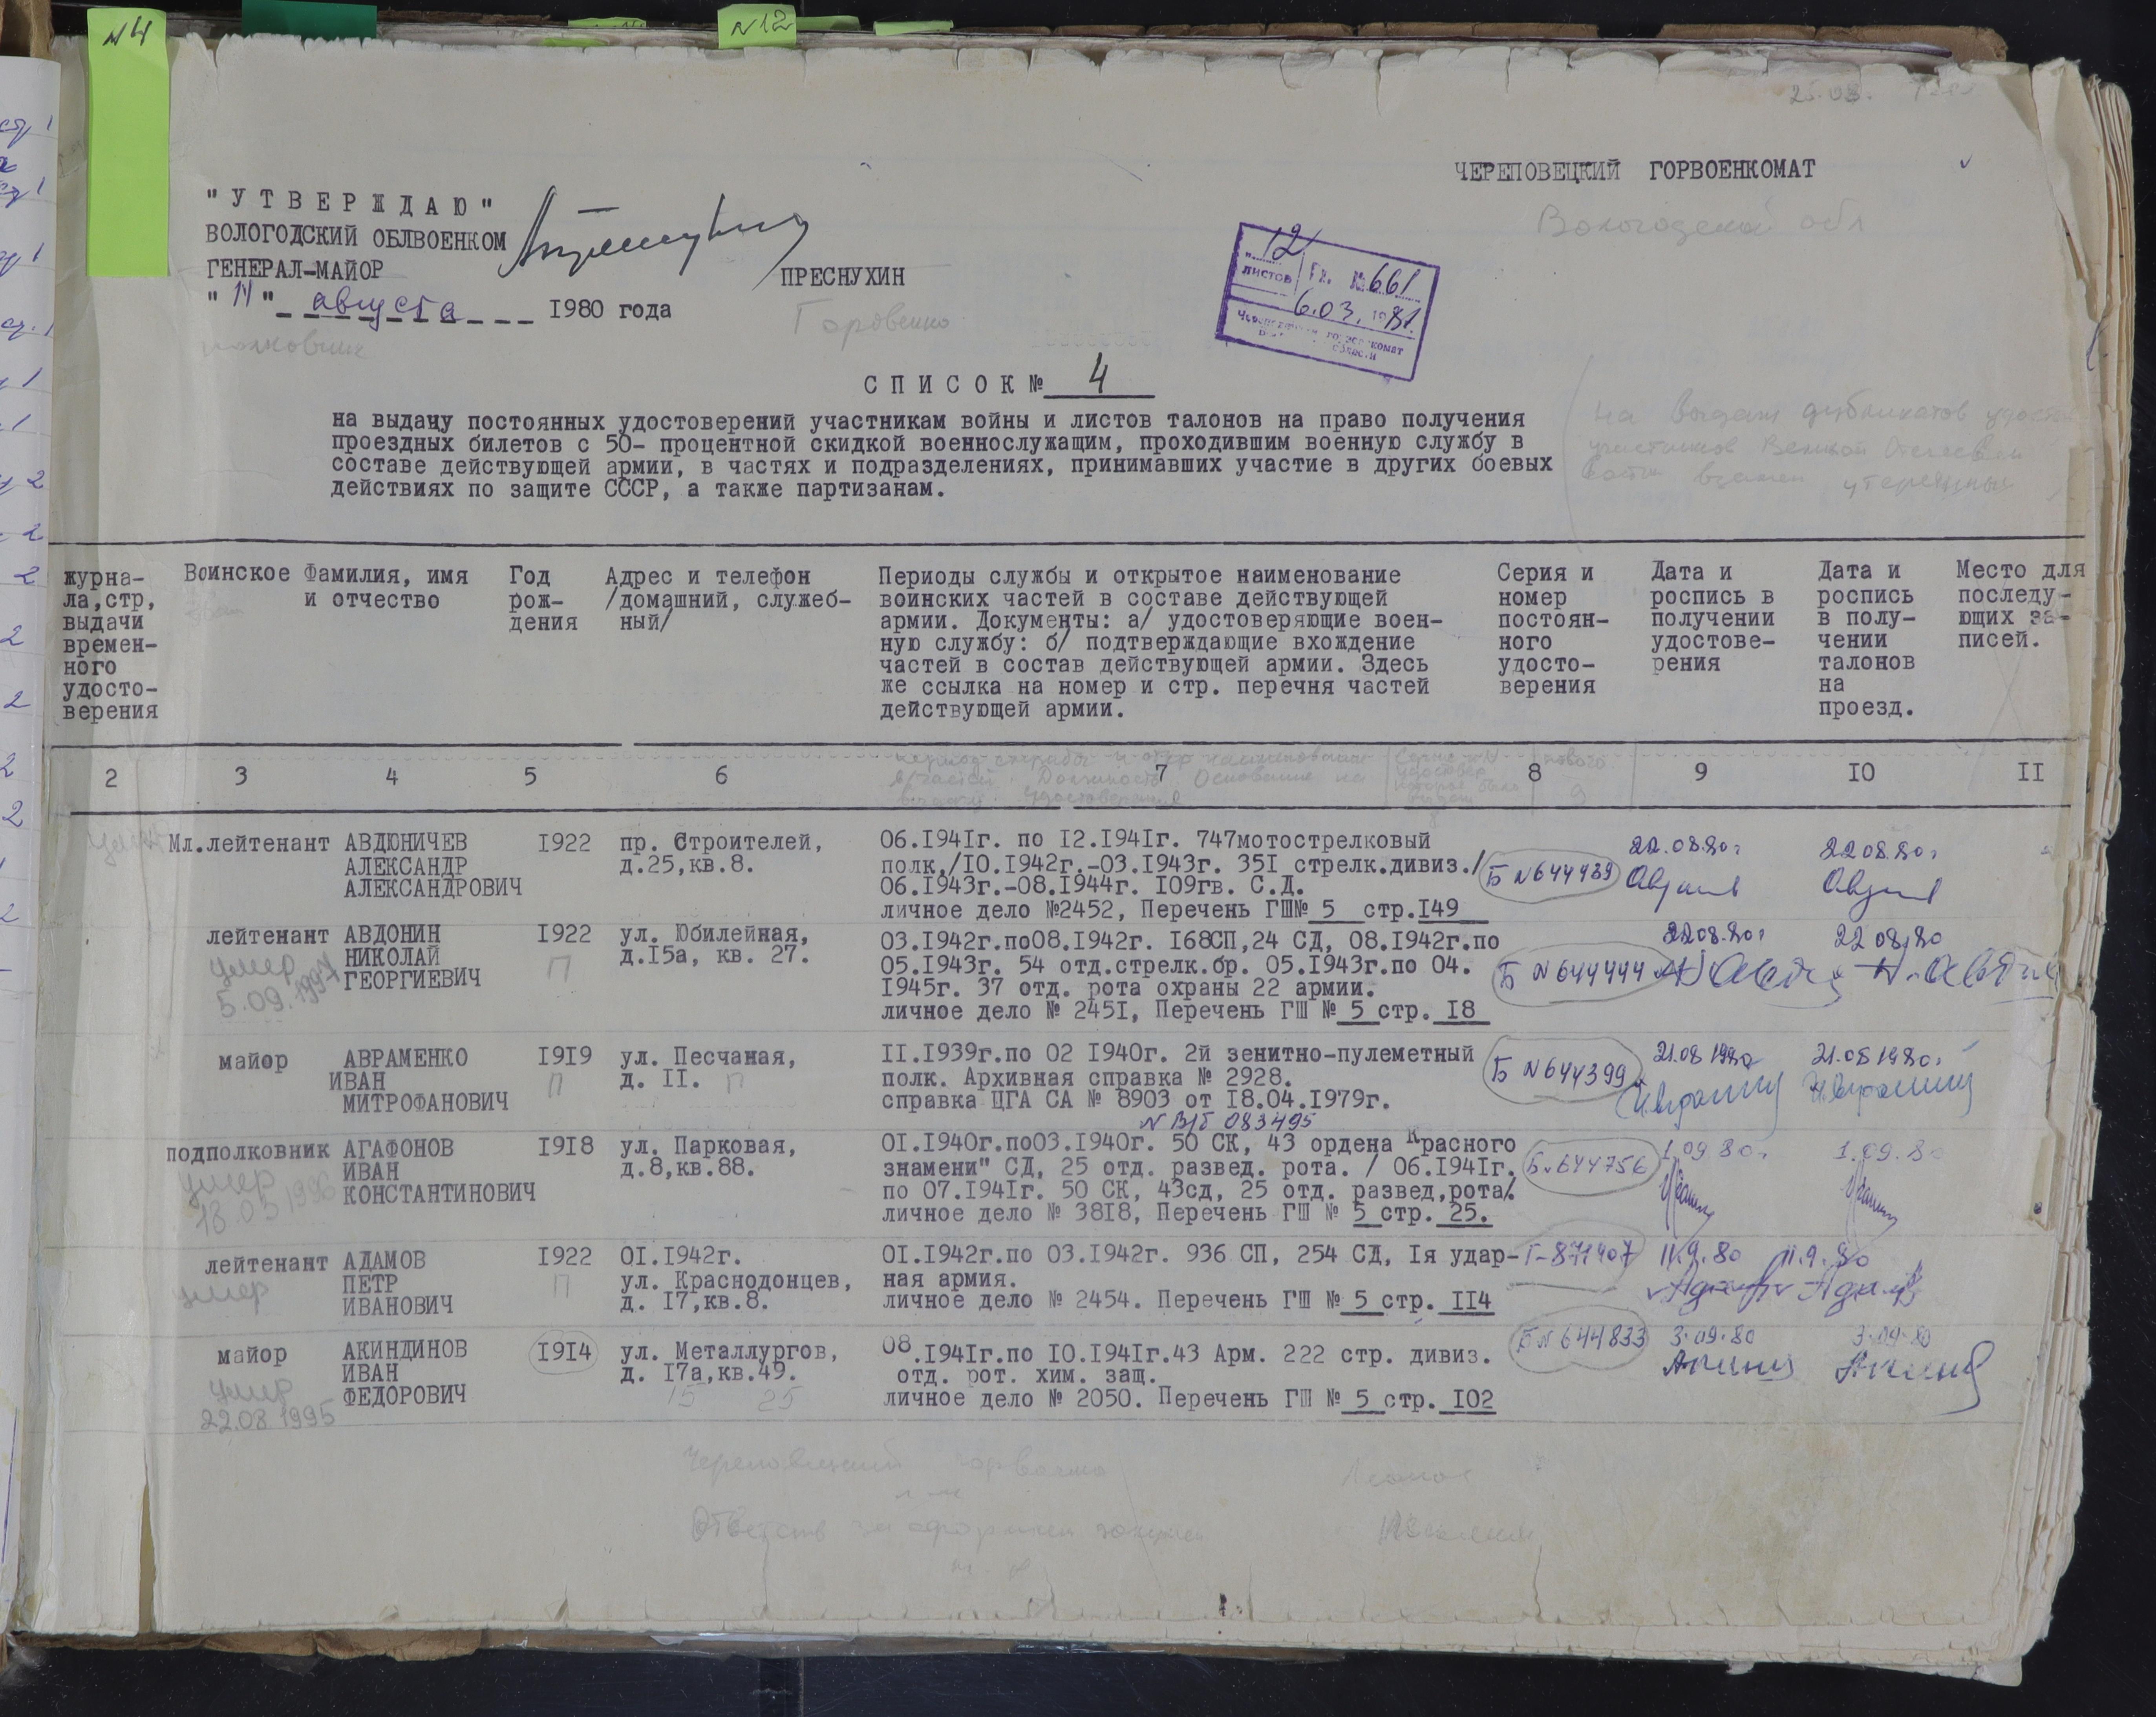 N4
N12
ЧЕРЕПОВЕЦКИЙ ГОРВОЕНКОМАТ
Вологодской обл
"УТВЕРЖДАЮ"
ВОЛОГОДСКИЙ ОБЛВОЕНКОМ
ГЕНЕРАЛ-МАЙОР
ПРЕСНУХИН
"14" августа 1980 года
полковник
12
листов
№661
6.03.1981.
СПИСОК № 4
на выдачу постоянных удостоверений участникам войны и листов талонов на право получения
проездных билетов с 50- процентной скидкой военнослужащим, проходившим военную службу в
составе действующей армии, в частях и подразделениях, принимавших участие в других боевых
действиях по защите СССР, а также партизанам.
на выдачу дубликатов
участников Великой
взамен утерянных
журна-
ла,стр,
выдачи
времен-
ного
удосто-
верения
Воинское
Фамилия, имя
и отчество
Год
рож-
дения
Адрес и телефон
/домашний, служеб-
ный/
Периоды службы и открытое наименование
воинских частей в составе действующей
армии. Документы: а/ удостоверяющие воен-
ную службу: б/ подтверждающие вхождение
частей в состав действующей армии. Здесь
же ссылка на номер и стр. перечня частей
действующей армии.
Серия и
номер
постоян-
ного
удосто-
верения
Дата и
роспись в
получении
удостове-
рения
Дата и
роспись
в полу-
чении
талонов
на
проезд.
Место для
последу-
ющих за-
писей.
2 3 4 5 6 7 8 9 I0 II
Мл.лейтенант АВДЮНИЧЕВ
АЛЕКСАНДР
АЛЕКСАНДРОВИЧ
I922
пр. Строителей,
д.25,кв.8.
06.I94Iг. по I2.I94Iг. 747мотострелковый
полк./I0.I942г.-03.I943г. 35I стрелк.дивиз./
06.I943г.-08.I944г. I09гв. С.Д.
личное дело №2452, Перечень ГШ№ 5 стр.I49
Б N644439
22.08.80г
22.08.80г
лейтенант АВДОНИН
НИКОЛАЙ
ГЕОРГИЕВИЧ
умер
5.09.1997
I922
П
ул. Юбилейная,
д.I5а, кв. 27.
03.I942г.по08.I942г. I68СП,24 СД, 08.I942г.по
05.I943г. 54 отд.стрелк.бр. 05.I943г.по 04.
I945г. 37 отд. рота охраны 22 армии.
личное дело № 245I, Перечень ГШ № 5 стр. I8
Б N644444
22.08.80г
22 08.80
майор АВРАМЕНКО
ИВАН
МИТРОФАНОВИЧ
I9I9
П
ул. Песчаная,
д. II. П
II.I939г.по 02 I940г. 2й зенитно-пулеметный
полк. Архивная справка № 2928.
справка ЦГА СА № 8903 от I8.04.I979г.
Б N644399
21.08 1980
21.08 1980г
N В/Б 083495
подполковник АГАФОНОВ
ИВАН
КОНСТАНТИНОВИЧ
умер
18.05 1996
I9I8
ул. Парковая,
д.8,кв.88.
0I.I940г.по03.I940г. 50 СК, 43 ордена Красного
знамени" СД, 25 отд. развед. рота. / 06.I94Iг.
по 07.I94Iг. 50 СК, 43сд, 25 отд. развед,рота/.
личное дело № 38I8, Перечень ГШ № 5 стр. 25.
Б N644756
1.09 80г
1.09.80
лейтенант АДАМОВ
ПЕТР
ИВАНОВИЧ
умер
I922
П
0I.I942г.
ул. Краснодонцев,
д. I7,кв.8.
0I.I942г.по 03.I942г. 936 СП, 254 СД, Iя удар-
ная армия.
личное дело № 2454. Перечень ГШ № 5 стр. II4
Г-871407
11.9.80
11.9.80
майор АКИНДИНОВ
ИВАН
ФЕДОРОВИЧ
умер
22.08.1995
I9I4
ул. Металлургов,
д. I7а,кв.49.
15 25
08.I94Iг.по I0.I94Iг.43 Арм. 222 стр. дивиз.
отд. рот. хим. защ.
личное дело № 2050. Перечень ГШ № 5 стр. I02
Б N 644833
3.09.80
3.09.80